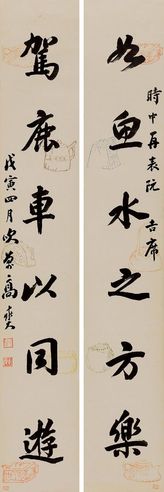 時中再表阮吉席
如魚水之方樂
駕鹿車以同遊
戊寅四月次䓣高奭